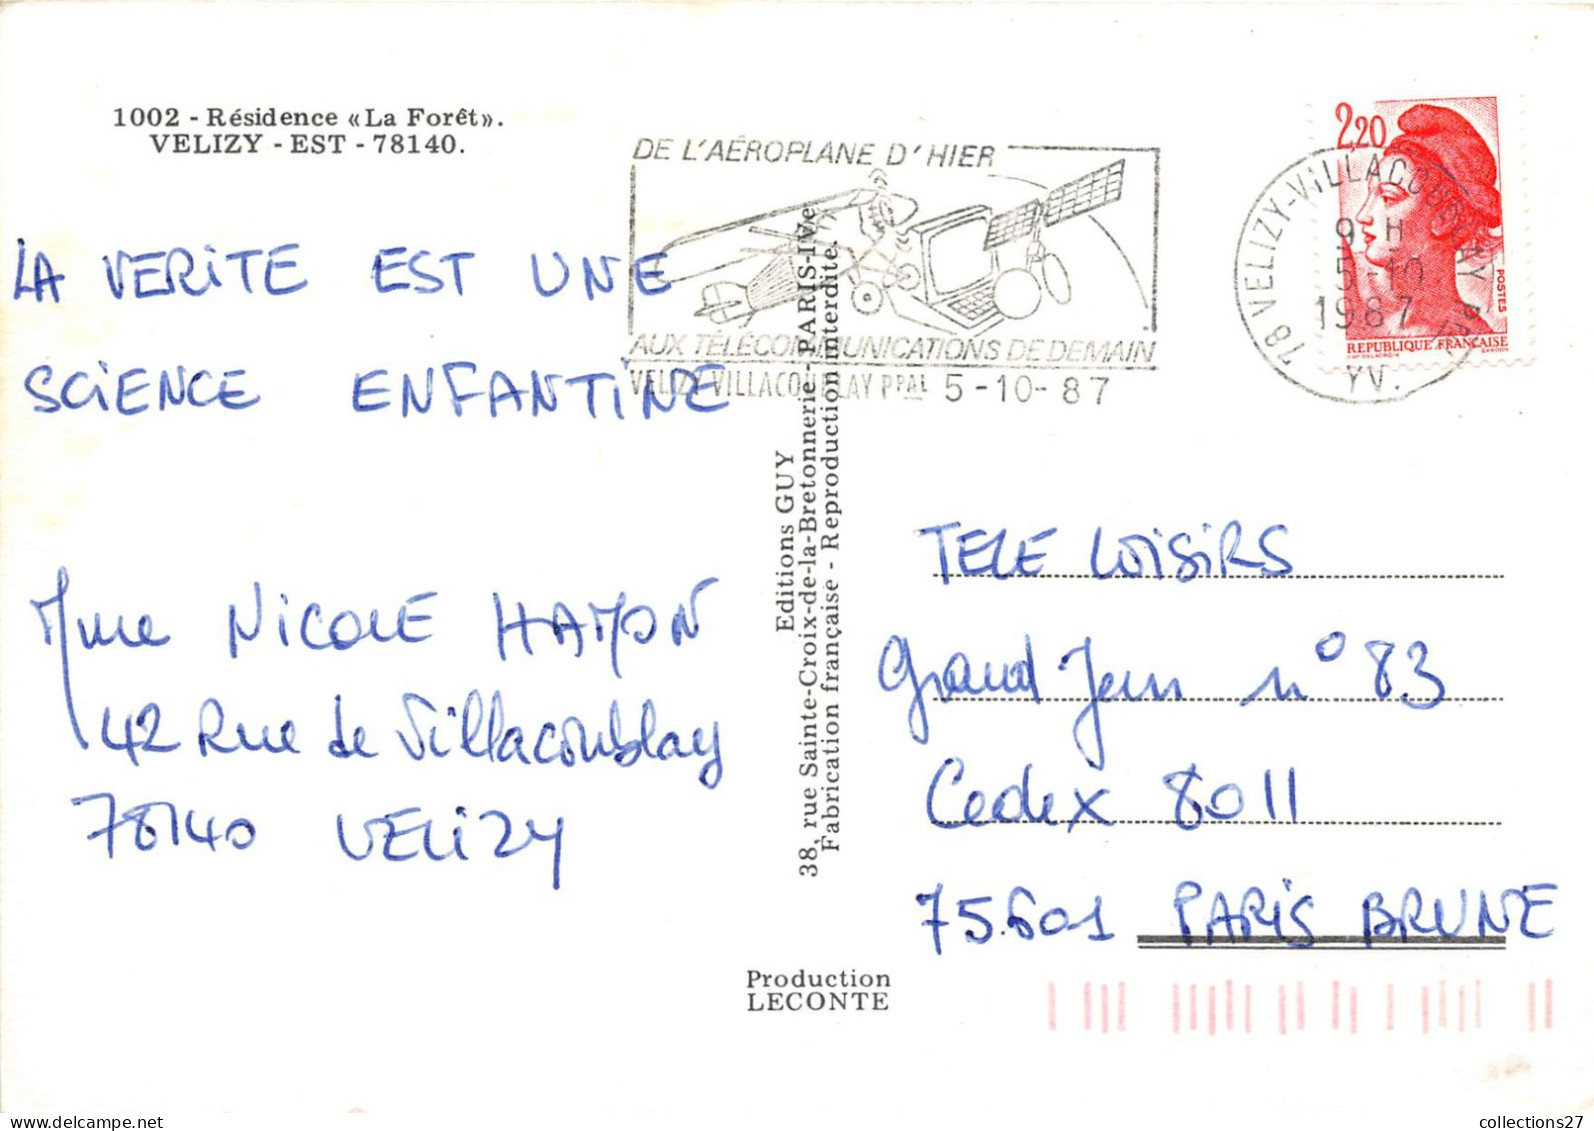 1002 - Résidence «La Forêt».
VELIZY - EST - 78140.
DE L'AÉROPLANE D'HIER
AUX TÉLÉCOMMUNICATIONS DE DEMAIN
VELIZY VILLACOUBLAY PPAL 5-10-87
2,20
POSTES
REPUBLIQUE FRANÇAISE
78 VELIZY-VILLACOUBLAY PPAL
9 H
5-10
1987
YV.
LA VERITE EST UNE
SCIENCE ENFANTINE
Mme NICOLE HAMON
42 Rue de Villacoublay
78140 VELIZY
Editions GUY
38, rue Sainte-Croix-de-la-Bretonnerie - PARIS-IVe
Fabrication française - Reproduction interdite.
TELE LOISIRS
Grand Jeu n° 83
Cedex 8011
75.601 PARIS BRUNE
Production
LECONTE
collections27